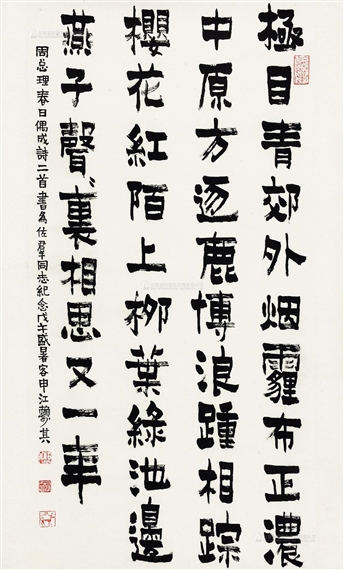 極目青郊外烟霾布正濃
中原方逐鹿博浪踵相踪
櫻花紅陌上柳葉綠池邊
燕子聲〻裏相思又一年
周总理春日偶成詩二首書為佐羣同志紀念戊午盛暑客申江其